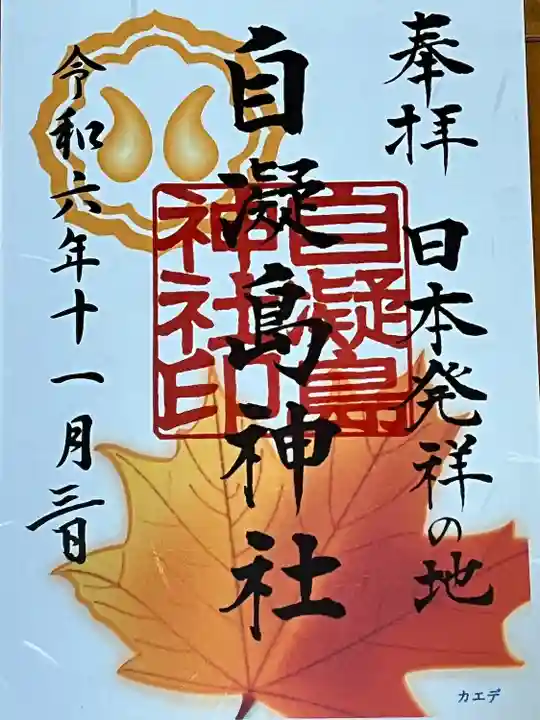 奉拝
日本発祥の地
自凝島神社
自凝島
神社印
令和六年十一月三日
カエデ